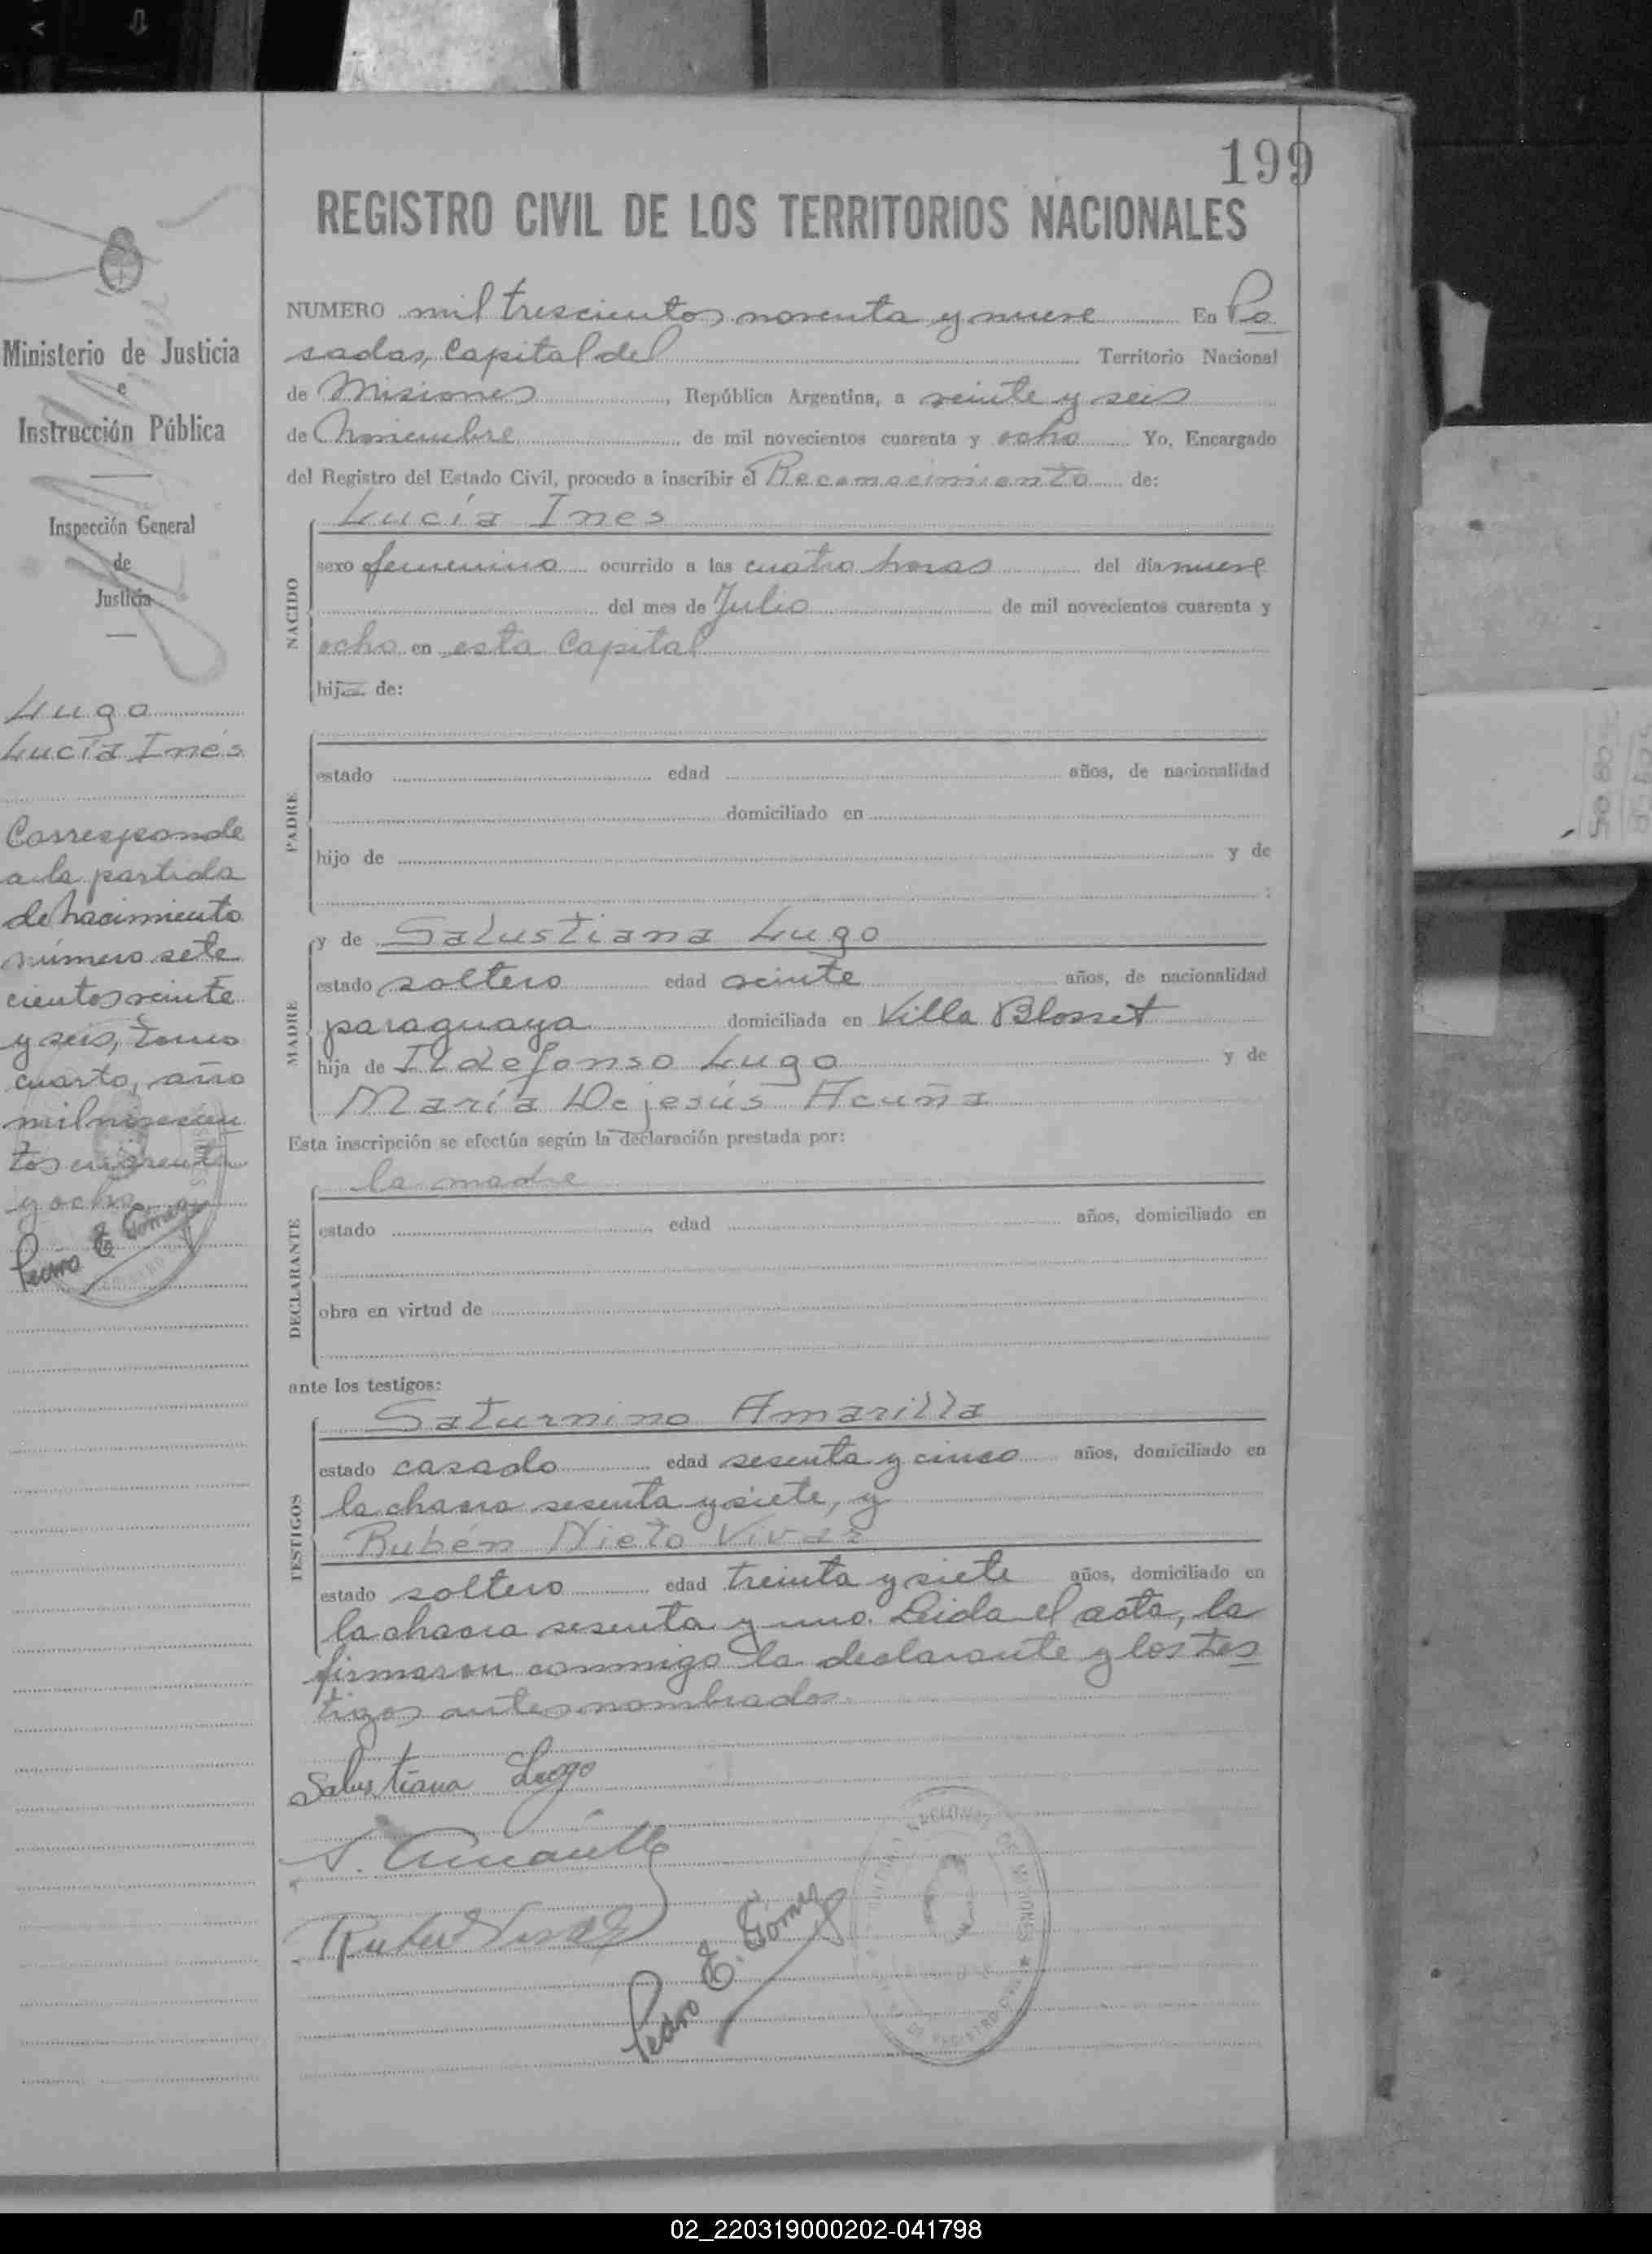 199
REGISTRO CIVIL DE LOS TERRITORIOS NACIONALES
Ministerio de Justicia
e
Instrucción Pública
Inspección General
de
Justicia
Lugo
Lucía Inés
Corresponde
a la partida
de nacimiento
número sete
cientos veinte
y seis, tomo
cuarto, año
mil novecien
tos cuarenta
y ocho
Pedro E. Gómez
NUMERO mil trescientos noventa y nueve En Po
sadas, Capital del Territorio Nacional
de Misiones, República Argentina, a veinte y seis
de Noviembre de mil novecientos cuarenta y ocho Yo, Encargado
del Registro del Estado Civil, procedo a inscribir el Reconocimiento de:
NACIDO
Lucía Ines
sexo femenino ocurrido a las cuatro horas del día nueve
del mes de Julio de mil novecientos cuarenta y
ocho en esta Capital
hija de:
PADRE
estado edad años, de nacionalidad
domiciliado en
hijo de y de
;
MADRE
y de Salustiana Lugo
estado soltero edad veinte años, de nacionalidad
paraguaya domiciliada en Villa Blosset
hija de Ildefonso Lugo y de
María Dejesús Acuña
Esta inscripción se efectúa según la declaración prestada por:
DECLARANTE
la madre
estado edad años, domiciliado en
obra en virtud de
ante los testigos:
TESTIGOS
Saturnino Amarilla
estado casado edad sesenta y cinco años, domiciliado en
la chacra sesenta y siete, y
Rubén Nieto Vivar
estado soltero edad treinta y siete años, domiciliado en
la chacra sesenta y uno. Leida el acta, la
firmaron conmigo la declarante y los tes
tigos antes nombrados
Salustiana Lugo
S. Amarilla
Pedro E. Gómez
02_220319000202-041798